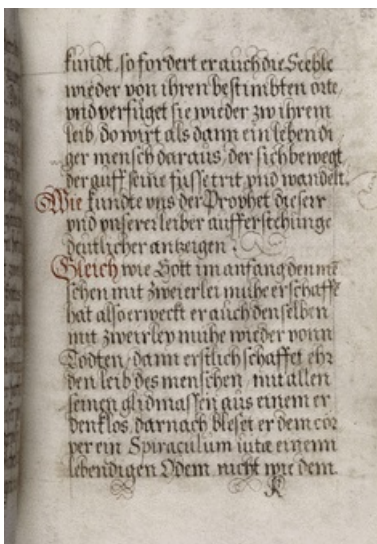 kundt, so fordert er auch die Seehle
wieder von ihren bestimbten orte,
vnd verfüget sie wieder zw ihrem
leib, do wirt als dann ein lebendi
ger mensch daraus, der sich bewegt
der auff seine füsse trit vnd wandelt.
Wie kundte vns der Prophet dieserr
vnd vnserer leiber aufferstehunge
deutlicher anzeigen.
Gleich wie Gott im anfang den mē
schen mit zweierlei muhe erschaffē
hat also erweckt er auch denselben
mit zweirley muhe wieder vonn
Todten, dann erstlich schaffet ehr
den leib des menschen, mit allen
seinen glidmassen aus einem er
denklos, darnach bleset er dem cor
per ein Spiraculum uitæ einenn
lebendigen Odem, nicht wie dem